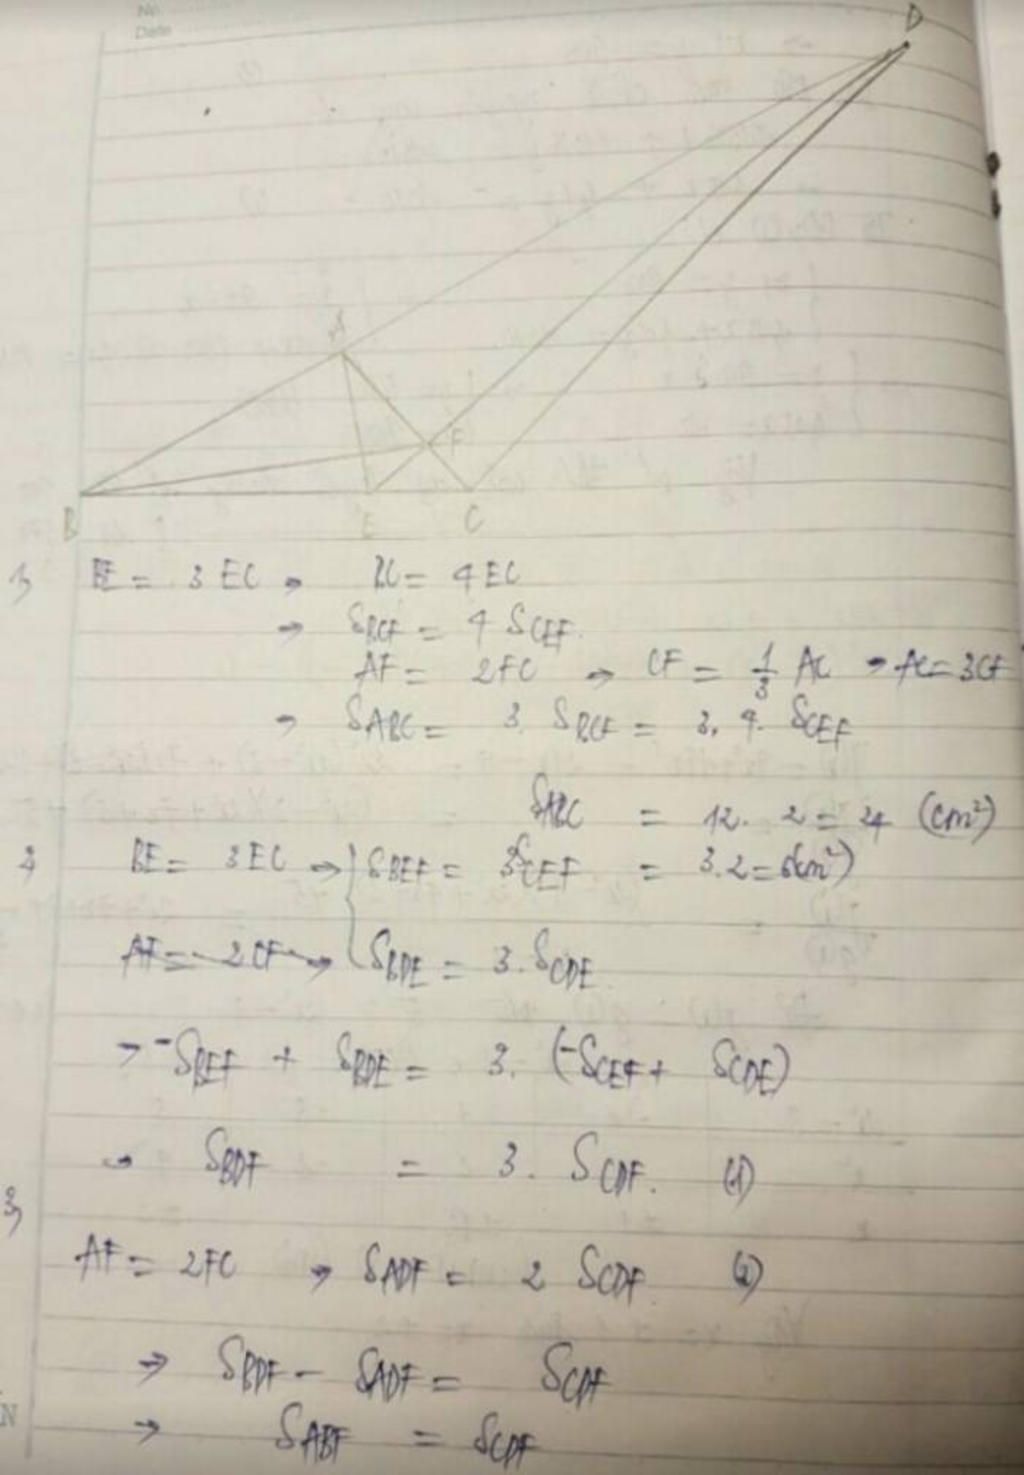 No.
Date
D
A
F
B E C
1, BE = 3 EC → BC = 4 EC
→ S_BCF = 4 S_CEF.
AF = 2FC → CF = 1/3 AC → AC = 3CF
→ S_ABC = 3. S_BCF = 3. 4. S_CEF
S_ABC = 12. 2 = 24 (cm²)
2, BE = 3 EC → { S_BEF = 3S_CEF = 3.2 = 6(cm²)
AF = 2CF → S_BDE = 3. S_CDE
→ -S_BEF + S_BDE = 3. (-S_CEF + S_CDE)
→ S_BDF = 3. S_CDF. (1)
3,
AF = 2FC → S_ADF = 2 S_CDF (2)
→ S_BDF - S_ADF = S_CDF
→ S_ABF = S_CDF